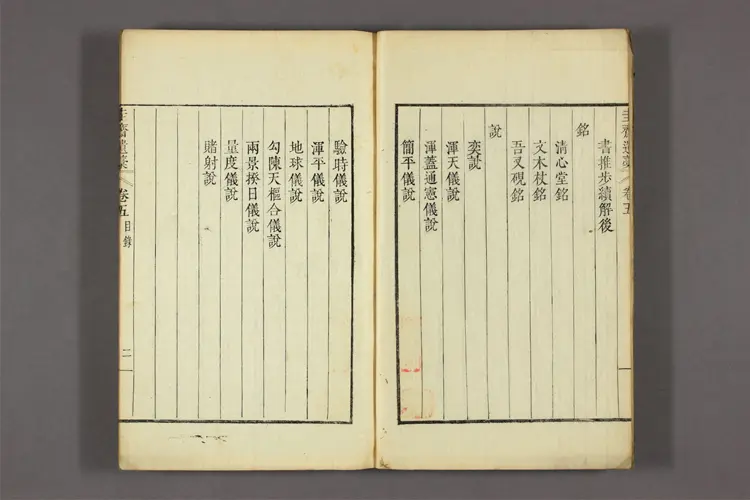 圭齋遺藁 卷五
書推步續解後
銘
清心堂銘
文木杖銘
吾叉硯銘
說
奕說
渾天儀說
渾蓋通憲儀說
簡平儀說
驗時儀說
渾平儀說
地球儀說
勾陳天樞合儀說
兩景揆日儀說
量度儀說
賭射說
圭齋遺藁 卷五 目錄 二